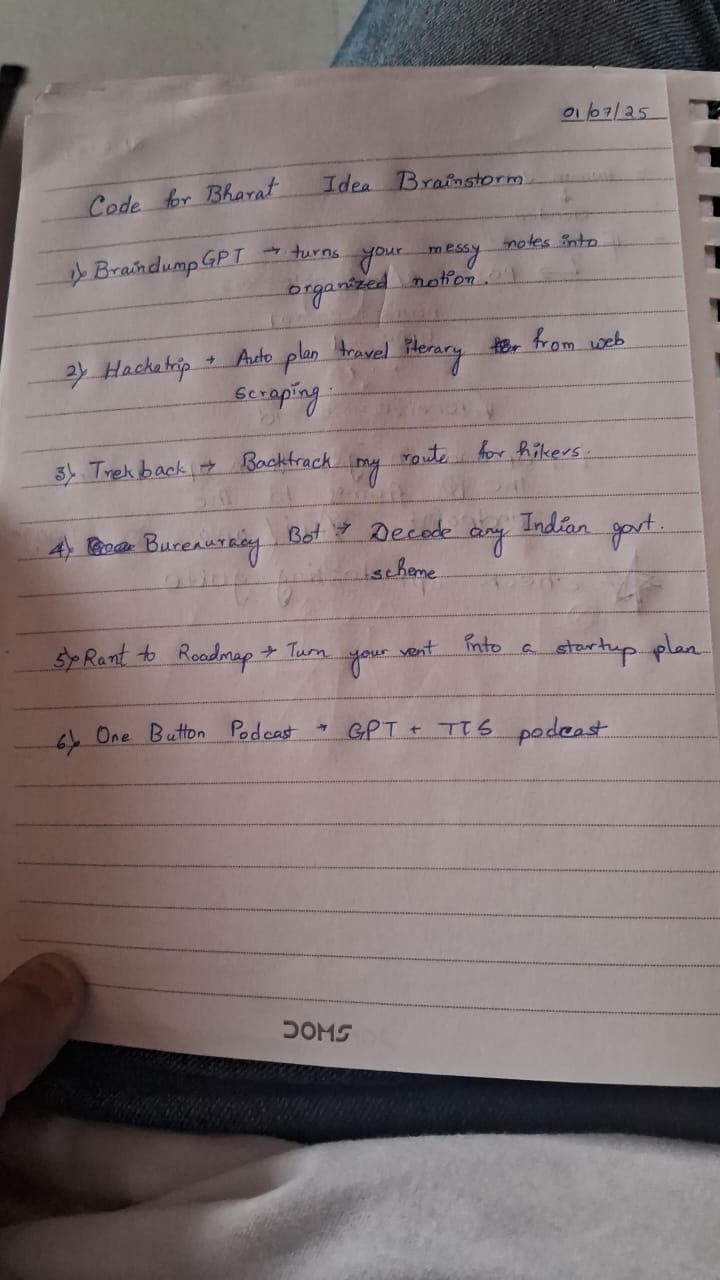 01/07/25
Code for Bharat Idea Brainstorm
1) BraindumpGPT → turns your messy notes into
organized notion.
2) Hackatrip → Auto plan travel iterary from web
scraping.
3) Trekback → Backtrack my route for hikers.
4) Bureauracy Bot → Decode any Indian govt.
scheme
5) Rant to Roadmap → Turn your vent into a startup plan
6) One Button Podcast → GPT + TTS podcast
DOMS